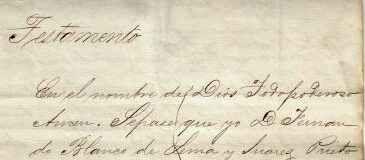 Testamento
En el nombre de Dios Todopoderoso
Amen. Sepase que yo D. Fernan
do Blanco de Lema y Suarez, Prieto